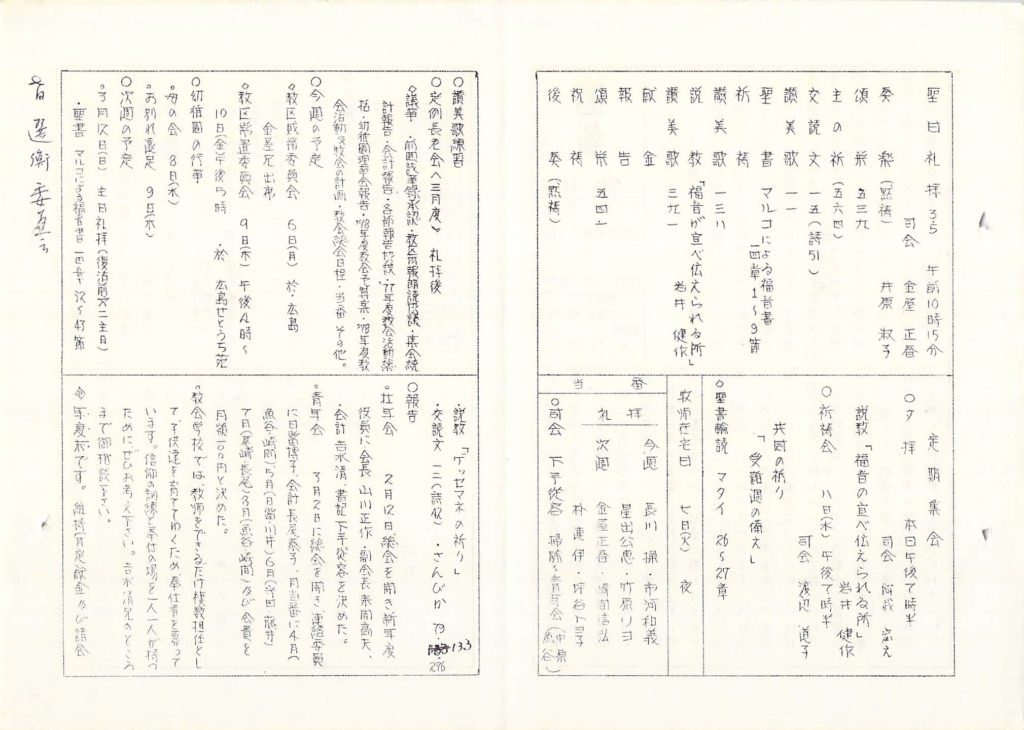 聖日礼拝 35 午前10時15分
司会 金屋 正春
奏楽 (黙祷) 井原 淑子
頌栄 五三九
主の祈 (五六四)
交読文 一五(詩51)
讃美歌 一一
聖書 マルコによる福音書
一四章1〜9節
祈祷
讃美歌 一三八
説教 「福音が宣べ伝えられる所」
岩井 健作
讃美歌 三九一
献金
報告
頌栄 五四一
祝祷
後奏 (黙祷)
定期集会
○夕拝 本日午後7時半
司会 宏え
説教「福音の宣べ伝えられる所」
岩井 健作
○祈祷会 八日(水)午後7時半
司会 渡辺 道子
共同の祈り
「受難週の備え」
○聖書輪読 マタイ 26〜27章
教師在宅日 七日(火) 夜
当番
礼拝
今週 長川 操・市河和義
星出公恵・竹原リヨ
次週 金屋正春・崎間信弘
朴 恵伊・坪谷トヨ子
○司会 下手從容 掃除 青年会(中原 魚谷)
○讃美歌練習
○定例長老会(三月度) 礼拝後
・議事・前回議事録承認・教区方報朗読協議・集会統
計報告・会計報告・各種報告協議・'77年度教会活動総
括・幼稚園理事会報告・'78年度教会予算案・'78年度教
会活動及牧会の計画・教会総会日程・当番 その他。
○今週の予定
・教区成常委員会 6日(月) 於・広島
金屋兄出席
・教区常置委員会 9日(木) 午後4時〜
10日(金)午後5時 於 広島せとうち苑
○幼稚園の行事
・母の会 8日(水)
・お別れ遠足 9日(木)
○次週の予定
・3月12日(日) 主日礼拝(復活前第二主日)
・聖書 マルコによる福音書 一四章 32〜43節
・説教「ゲッセマネの祈り」
・交読文 一二(詩42) ・さんびか 79・133・276
○報告
・壮年会 2月12日総会を開き新年度
役員に会長 山川正作 副会長 末岡高夫、
会計 吉水清、書記 下手従容を決めた。
・青年会 3月2日に総会を開き、連絡委員
に日當博子、会計長尾泰子、月当番に4月(
魚谷・崎間)5月(日當・川井)6月(守田・藤井)
7月(尾崎・長尾)8月(魚谷・崎間)及び会費を
月額一〇〇円と決めた。
・教会学校では、教師をできるだけ複数担任とし
て子供達を育ててゆくため奉仕者を募って
います。信仰の訓練と奉仕の場を一人一人が持つ
ためにぜひお考え下さい。吉水清兄のところ
まで御相談下さい。
・年度末です。維持月定献金及び諸会
選衡委員会